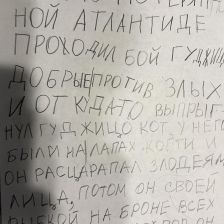 НОЙ АТЛАНТИДЕ
ПРОХОДИЛ БОЙ ГУДЖИЦ
ДОБРЫЕ ПРОТИВ ЗЛЫХ
И ОТ КУДАТО ВЫПРЫГ
НУЛ ГУДЖИЦО КОТ У НЕГ
БЫЛИ НА ЛАПАХ КОГТИ И
ОН РАСЦАРАПАЛ ЗЛОДЕЯМ
ЛИЦА, ПОТОМ ОН СВОЕЙ
НА БРОНЕ ВСЕХ